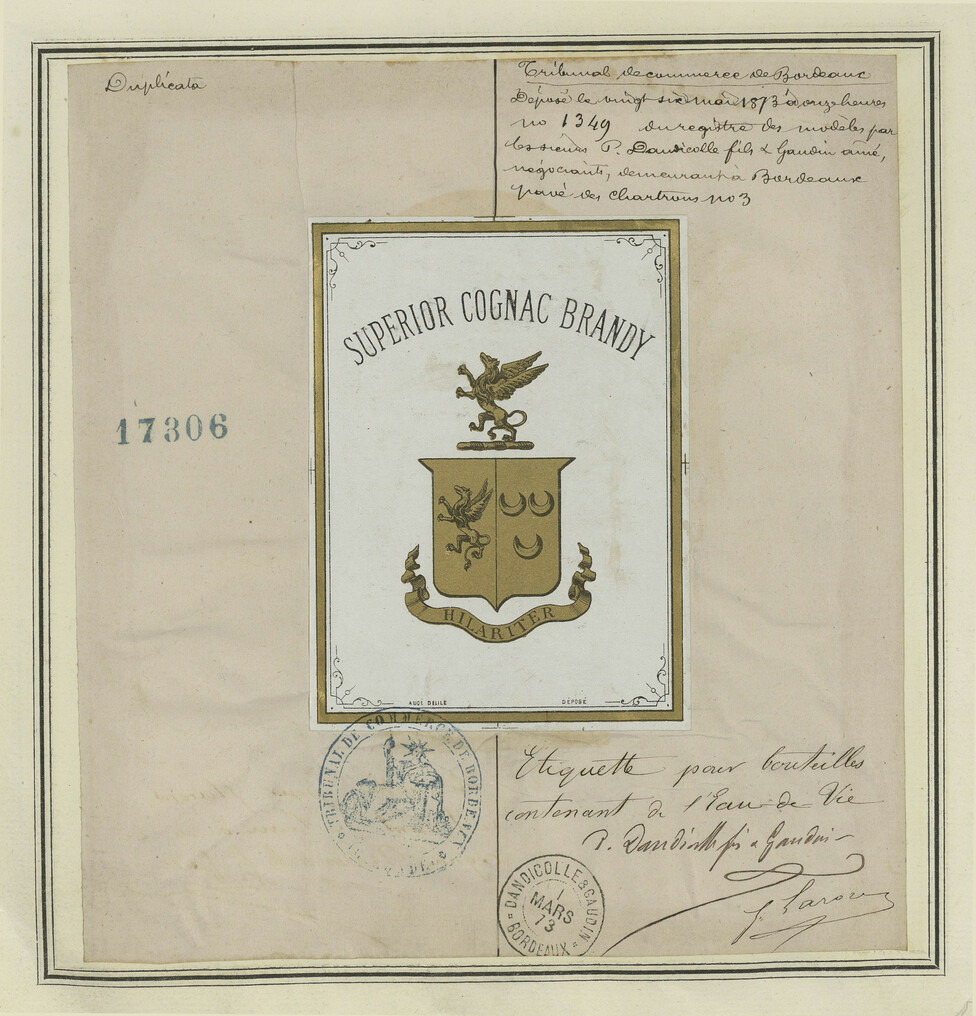 Duplicata
Tribunal de commerce de Bordeaux
Déposé le vingt six mai 1873 à onze heures
no 1349 du registre des modèles par
les sieurs P. Dandicolle fils & Gaudin ainé,
négociants, demeurant à Bordeaux
pavé des chartrons no 3
SUPERIOR COGNAC BRANDY
17306
HILARITER
AUGE DELILE DÉPOSÉ
TRIBUNAL DE COMMERCE DE BORDEAUX
Etiquette pour bouteilles
contenant de l'Eau-de-Vie
P. Dandicolle fils & Gaudin
DANDICOLLE & GAUDIN
1
MARS
73
BORDEAUX